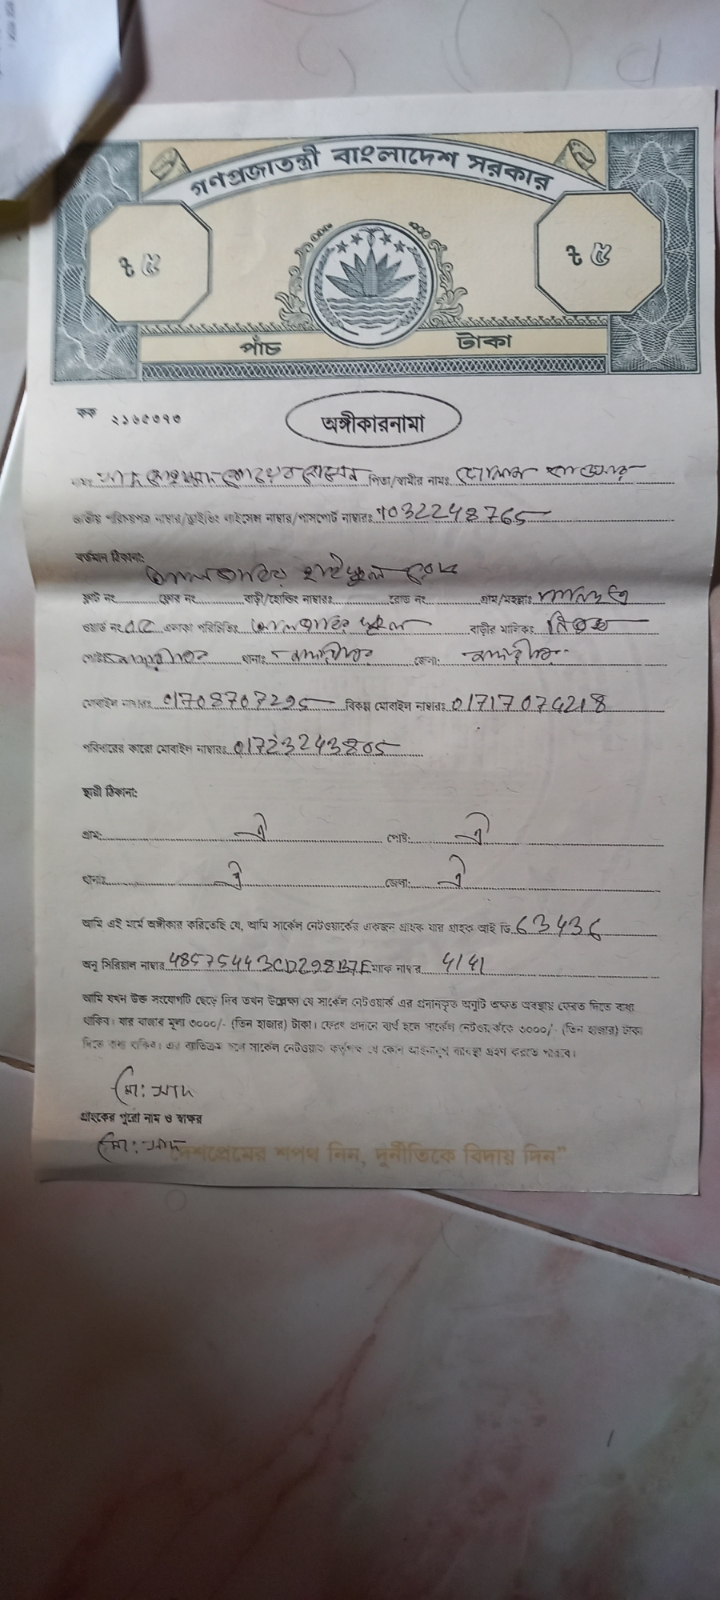 গণপ্রজাতন্ত্রী বাংলাদেশ সরকার
৳ ৫ ৳ ৫
পাঁচ টাকা
কক ২১৬৫৩৭৩
অঙ্গীকারনামা
নামঃ পিতা/স্বামীর নামঃ
জাতীয় পরিচয়পত্র নাম্বার/ড্রাইভিং লাইসেন্স নাম্বার/পাসপোর্ট নাম্বারঃ 1032248765
বর্তমান ঠিকানা:
ফ্লাট নং ফ্লোর নং বাড়ী/হোল্ডিং নাম্বারঃ রোড নং গ্রাম/মহল্লাঃ
ওয়ার্ড নং এলাকা পরিচিতিঃ বাড়ীর মালিকঃ নিজস্ব
পোষ্টঃ থানাঃ জেলা:
মোবাইল নাম্বারঃ 01708707295 বিকল্প মোবাইল নাম্বারঃ 01717074218
পরিবারের কারো মোবাইল নাম্বারঃ 01723243805
স্থায়ী ঠিকানা:
গ্রামঃ ঐ পোষ্ট: ঐ
থানাঃ ঐ জেলা: ঐ
আমি এই মর্মে অঙ্গীকার করিতেছি যে, আমি সার্কেল নেটওয়ার্কের একজন গ্রাহক যার গ্রাহক আই ডি 63436
অনু সিরিয়াল নাম্বার 48575443CD298B7E ম্যাক নাম্বার 4141
আমি যখন উক্ত সংযোগটি ছেড়ে দিব তখন উল্লেক্ষ্য যে সার্কেল নেটওয়ার্ক এর প্রদানকৃত অনুটি অক্ষত অবস্থায় ফেরত দিতে বাধ্য
থাকিব। যার বাজার মূল্য ৩০০০/- (তিন হাজার) টাকা। ফেরৎ প্রদানে ব্যর্থ হলে সার্কেল নেটওয়ার্ককে ৩০০০/- (তিন হাজার) টাকা
দিতে বাধ্য থাকিব। এর ব্যতিক্রম হলে সার্কেল নেটওয়ার্ক কর্তৃপক্ষ যে কোন আইনানুগ ব্যবস্থা গ্রহণ করতে পারবে।
মো: সাদ
গ্রাহকের পুরো নাম ও স্বাক্ষর
মো: সাদ
দেশপ্রেমের শপথ নিন, দুর্নীতিকে বিদায় দিন"